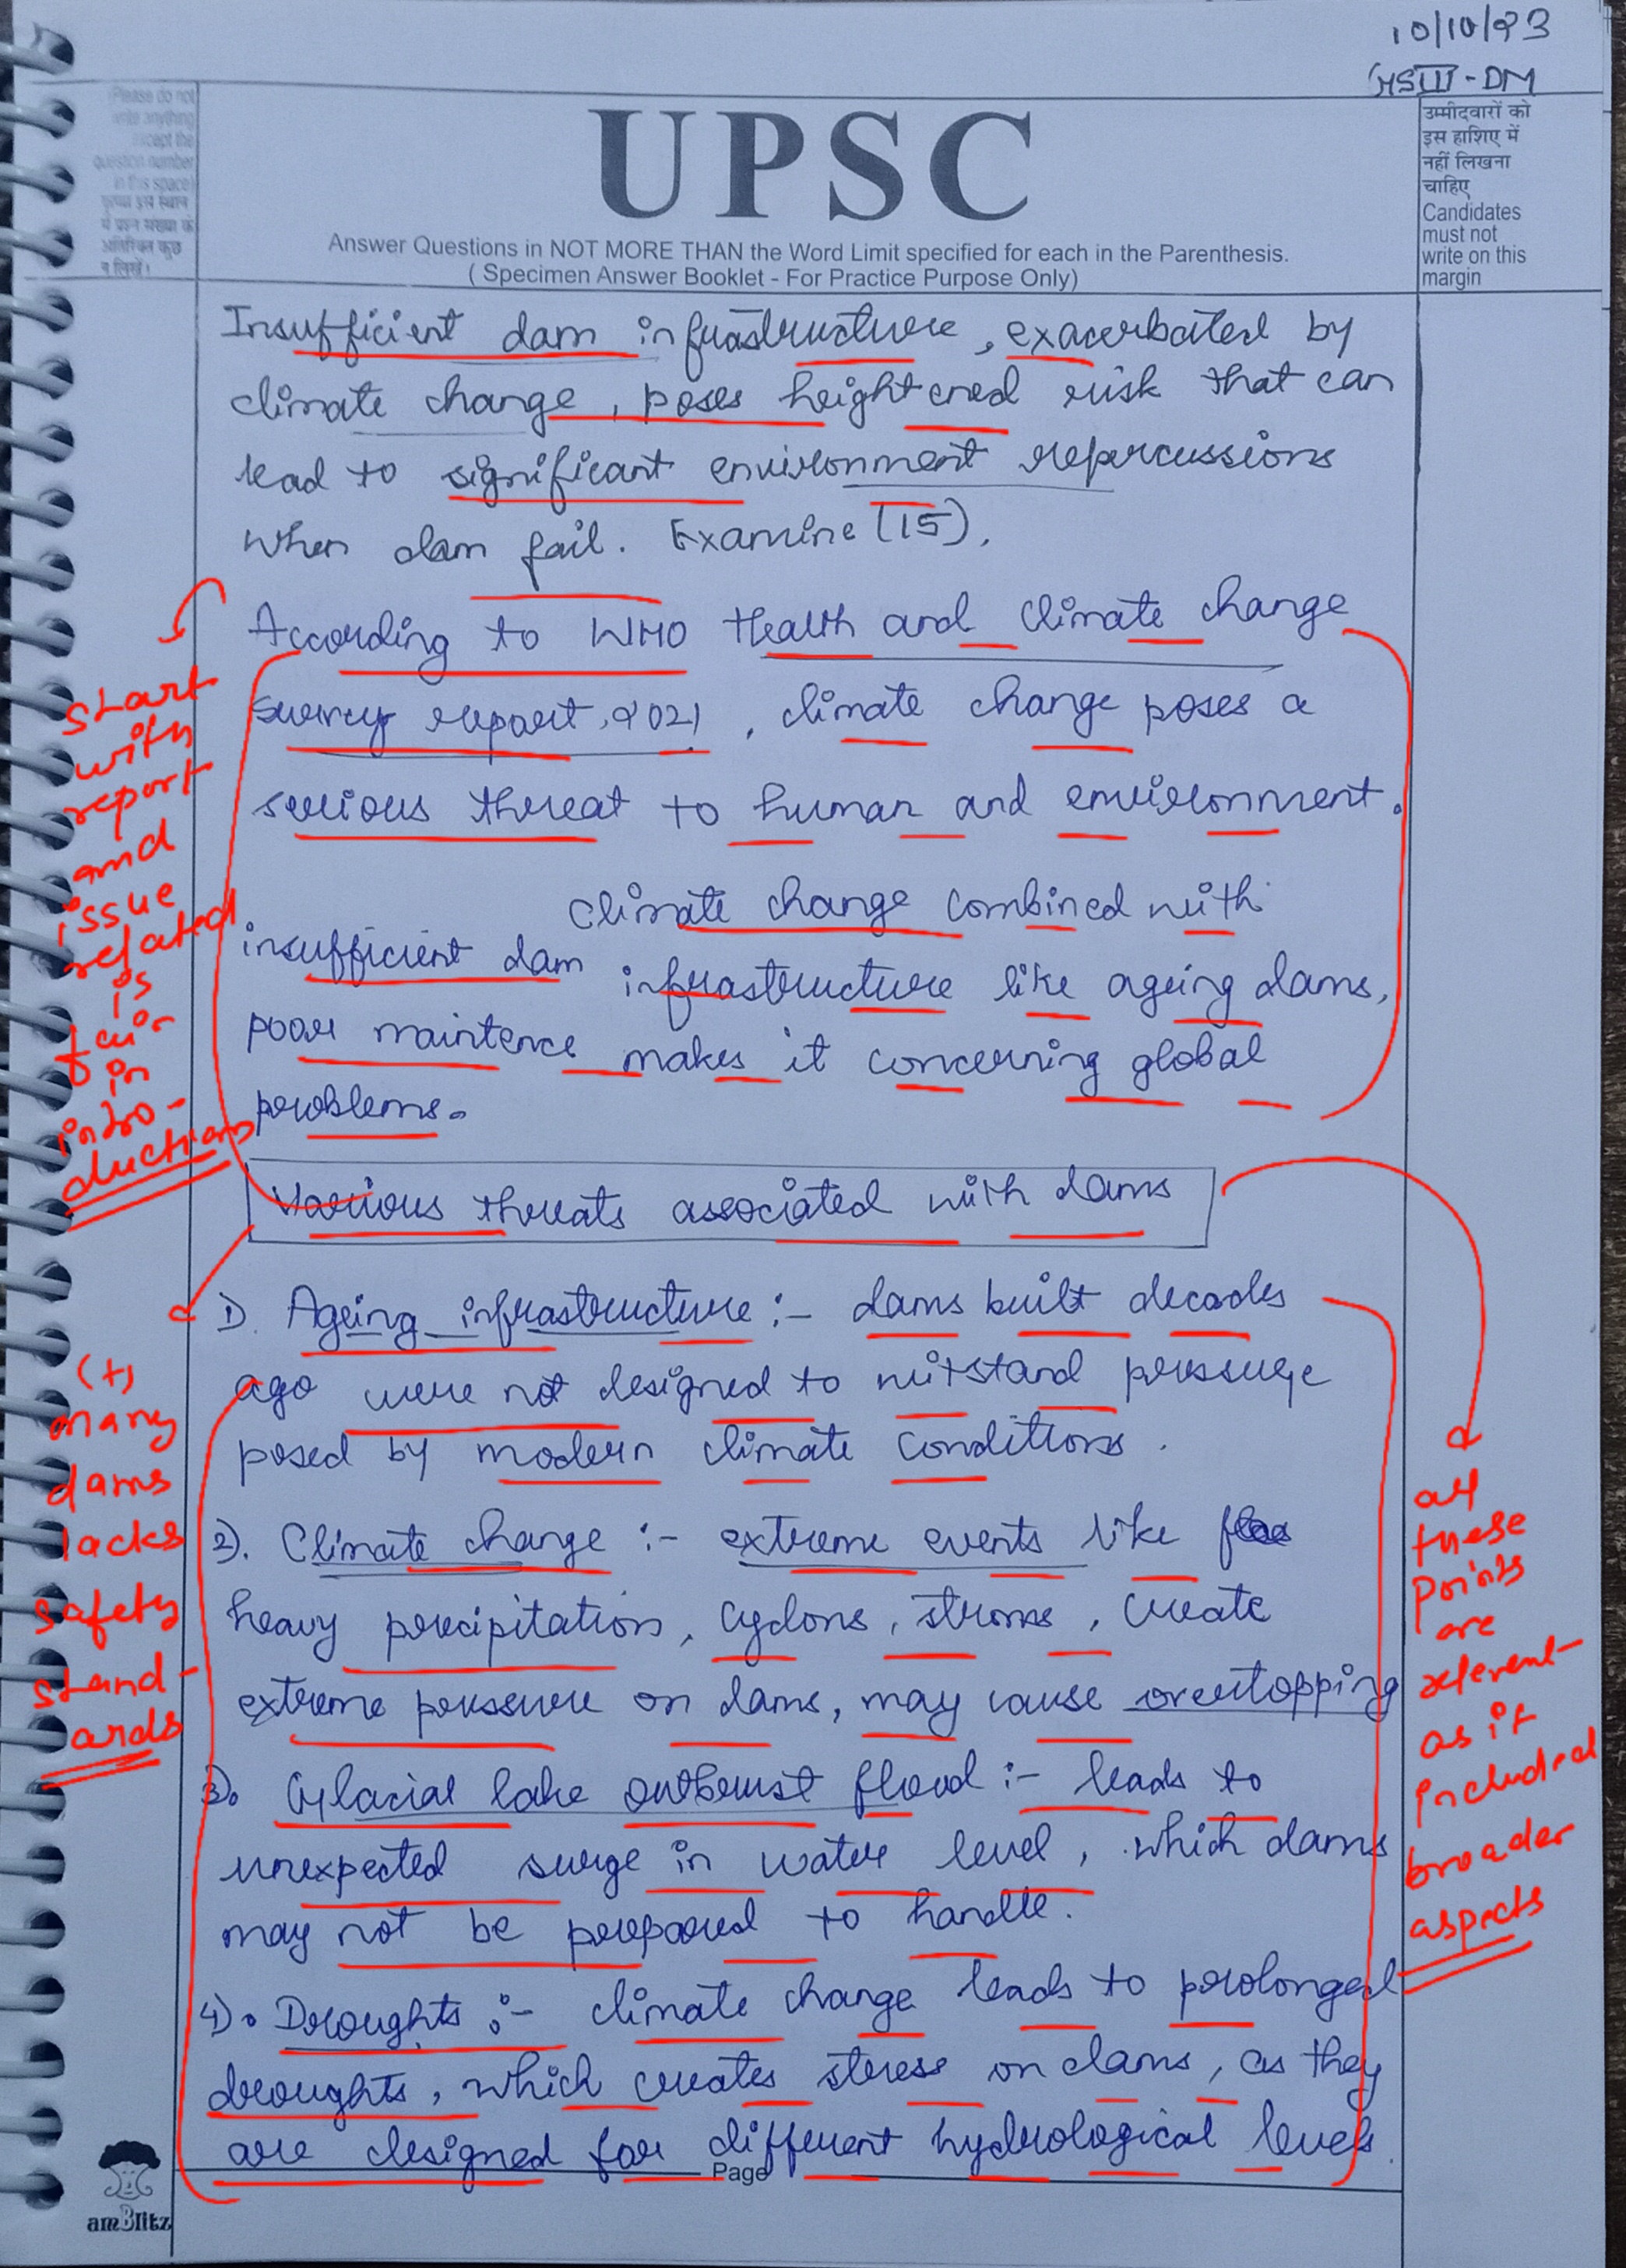 10/10/23
GSIII-DM
(Please do not
write anything
except the
question number
in this space)
कृपया इस स्थान
में प्रश्न संख्या के
अतिरिक्त कुछ
न लिखें।
UPSC
Answer Questions in NOT MORE THAN the Word Limit specified for each in the Parenthesis.
( Specimen Answer Booklet - For Practice Purpose Only)
उम्मीदवारों को
इस हाशिए में
नहीं लिखना
चाहिए
Candidates
must not
write on this
margin
Insufficient dam infrastructure, exacerbated by
climate change, poses heightened risk that can
lead to significant environment repercussions
when dam fail. Examine (15).
According to WHO Health and Climate change
survey report, 2021, climate change poses a
serious threat to human and environment.
Climate change combined with
insufficient dam infrastructure like ageing dams,
poor maintence makes it concerning global
problems.
start
with
report
and
issue
related
is
fair
in
intro-
duction
Various threats associated with dams
1). Ageing infrastructure :- dams built decades
ago were not designed to witstand pressure
posed by modern climate conditions.
2). Climate change :- extreme events like
heavy precipitation, cyclons, stroms, create
extreme pressure on dams, may cause overtopping
3). Glacial lake outburst flood :- leads to
unexpected surge in water level, which dams
may not be prepared to handle.
4). Droughts :- climate change leads to prolonged
droughts, which creates stress on dams, as they
are designed for different hydrological levels.
(+)
many
dams
lacks
safety
stand-
ards
all
these
points
are
referent
as it
included
broader
aspects
Page
amBlitz